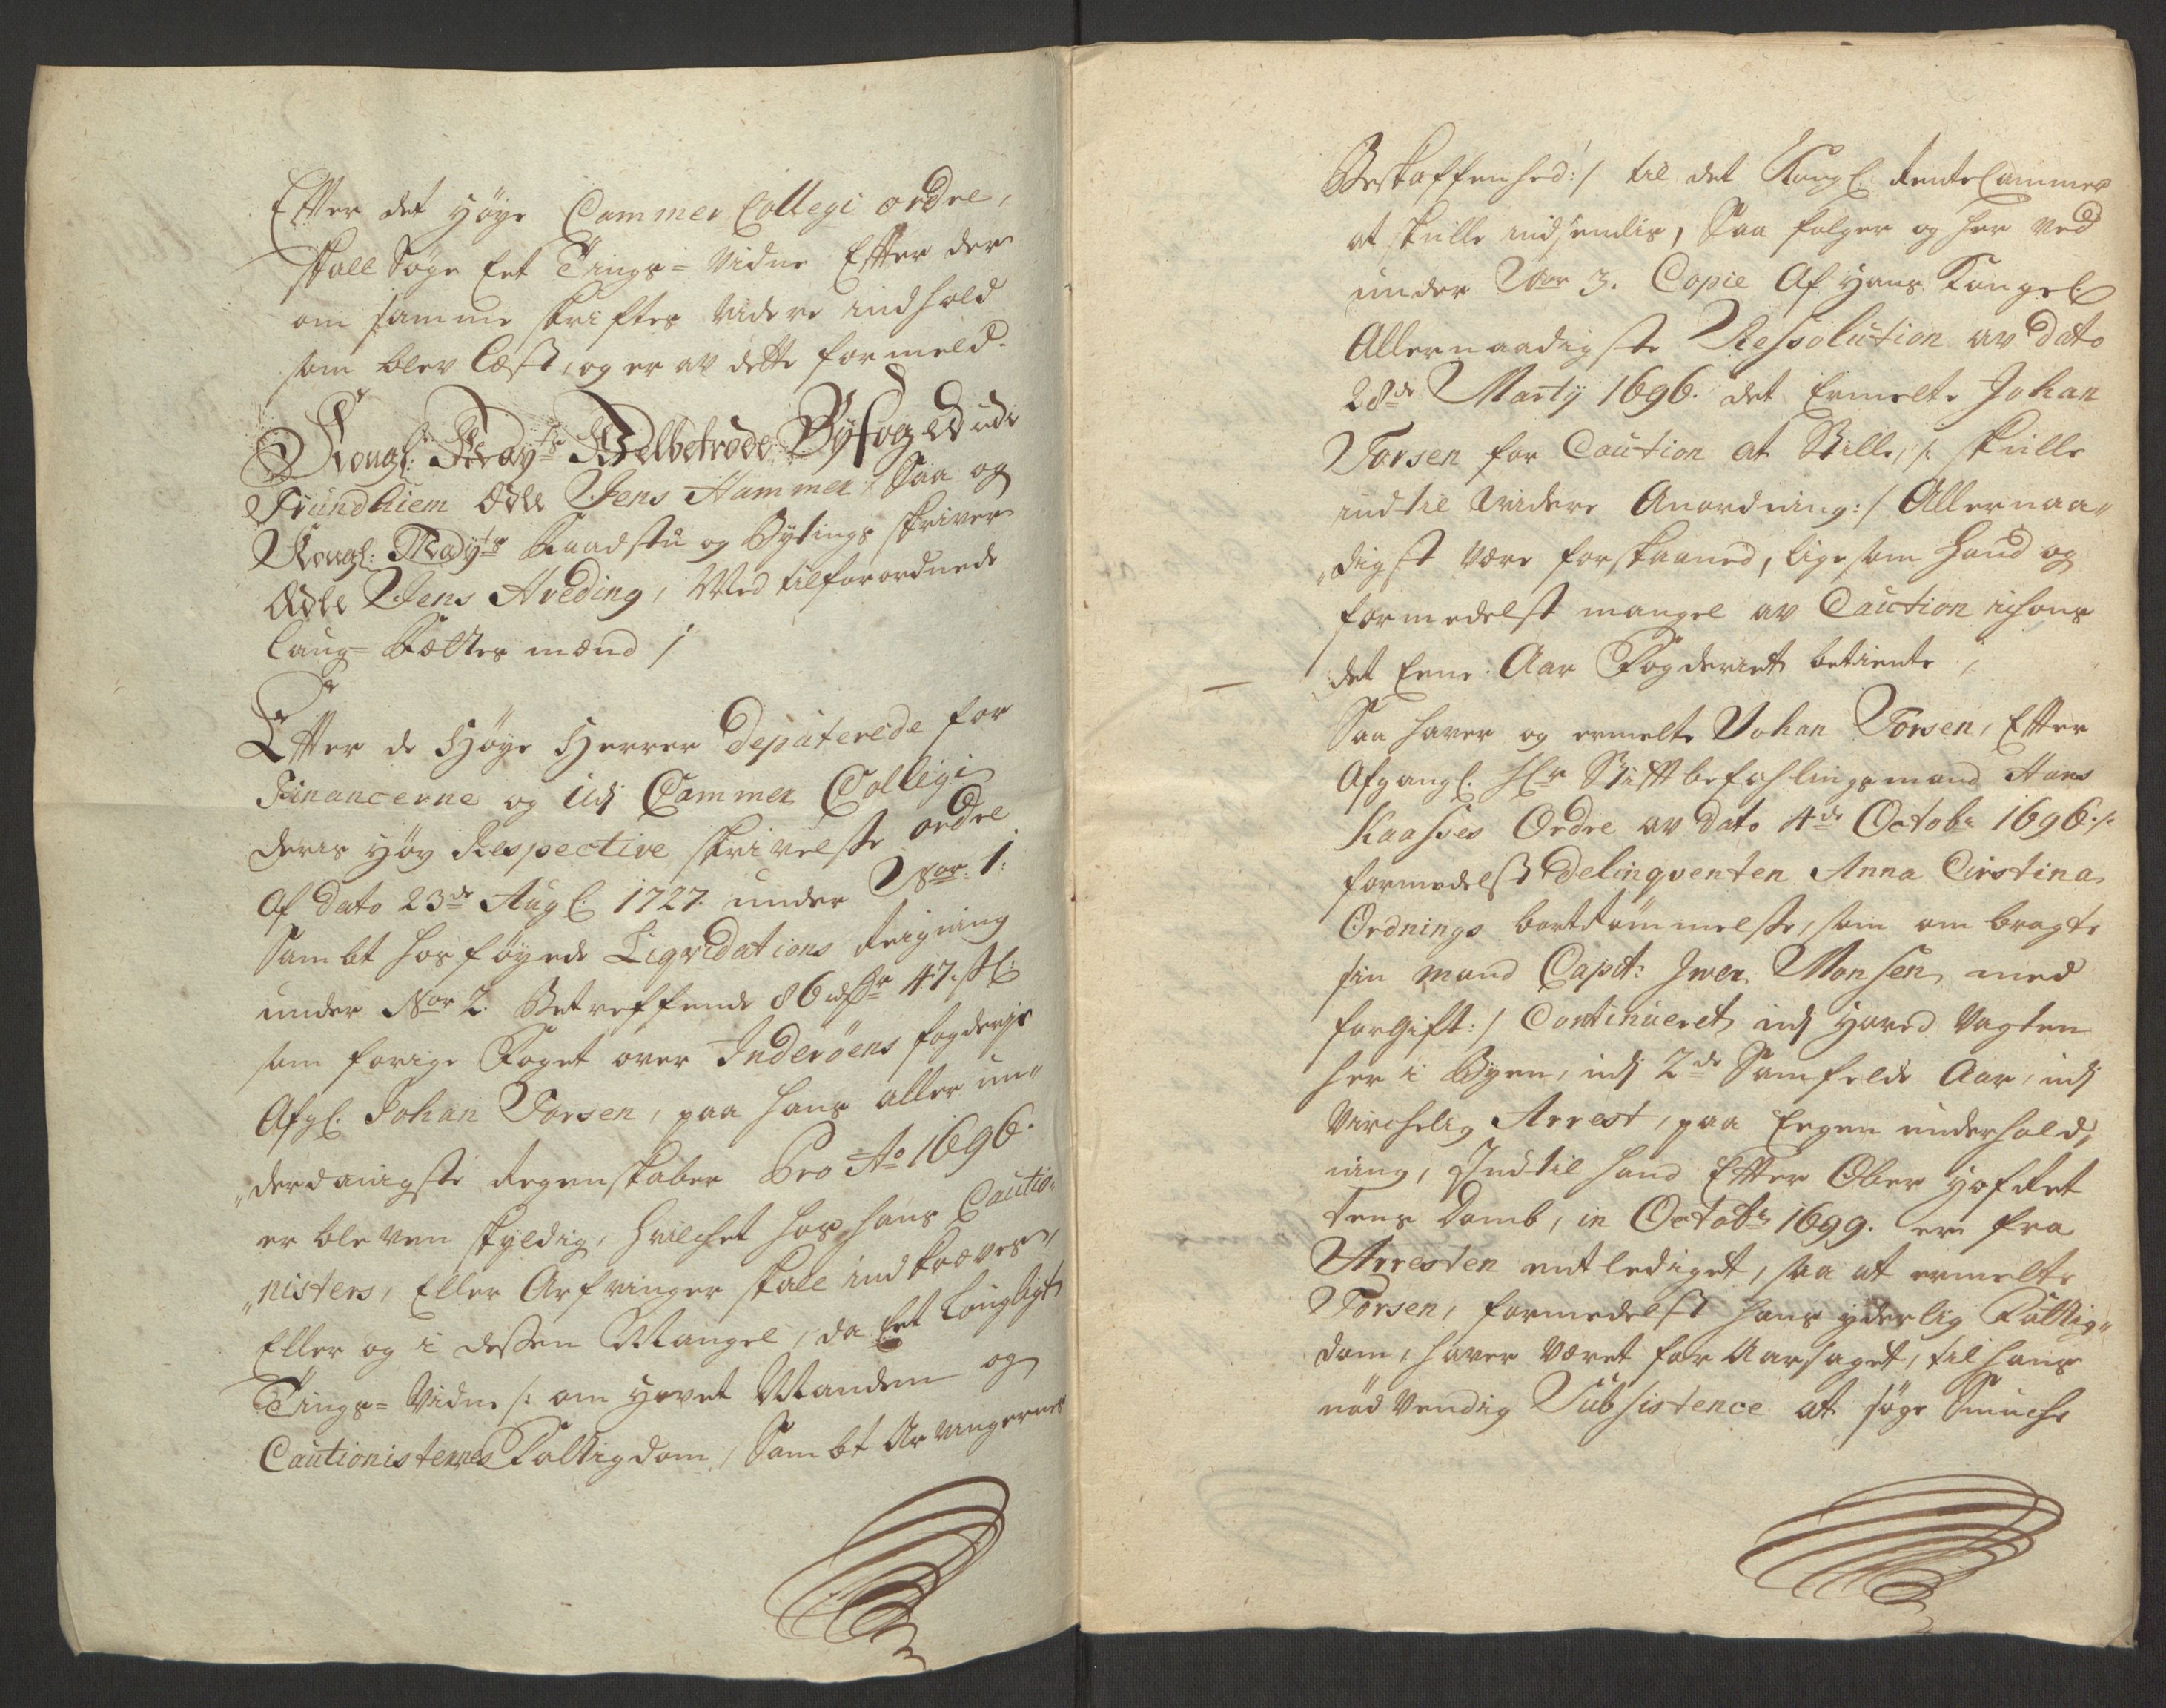 Efter det høye Cammer Collegi ordre,
skall søge Eet Tings=Vidne Efter der
om samme skriftes videre indhold
som blev Læst, og er av dette formeld.
Kongl: Mayts Velbetrode Byfoged udi
Trundhiem Ædle Jens Hammer, Saa og
Kongl: Mayts Raadstu og Bytings skriver
Ædle Jens Hveding, Med tilforordnede
Laug=Rættes mænd /
Efter de Høye Herrer Deputerede for
Financerne og udj Cammer Collegi
deris høy Respective skrivelse ordre
Af dato 23de Aug: 1727. under Nor. 1.
Sambt hosføyede Liqvidations Reigning
under Nor 2. Betreffende 86 rdr 47. sk:
som forige Foget over Inderöens fogderje
Afgl. Johan Torsen, paa hans aller un„
„derdanigste Regenskaber Pro Ao 1696.
er bleven skyldig, hvilchet hos hans Cautio„
„nisters, Eller Arfvinger skall indkræves,
Eller og i dessen Mangel, da Eet Lougligt
Tings=Vidne /: om hovet Manden og
Cautionisternes Fattigdom, Sambt Arvingernes
Beskaffenhed :/ til det Kongl: RenteCammer
at skulle indsendis, Saa følger og her ved
under Nor 3. Copie Af Hans Kongel:
Allernaadigste Ressolution av dato
28de Martij 1696. det Ermelte Johan
Torsen for Caution at Stille, /: skulle
indtil Videre Anordning :/ Allernaa„
„digst være forskaaned, ligesom hand og
formedelst mangel av Caution ichons
det Eene Aar Fogderiet betiente ;
Saa haver og ermelte Johan Torsen, Efter
Afgangl: Hr Stiftbefahlingsmand Hans
Kaasses Ordre av dato 4de Octobr 1696. /:
formedelst Delinqventen Anna Cirstina
Ordnings borttømmelse, som om bragte
sin mand Capit: Iver Monsen, med
forgift :/ Continueret udj Hoved Vagten
her i Byen, udj 2de Samfelde Aar, udj
Virchelig Arrest, paa Eegen underhold„
ning, Indtil hand Efter Ober Hof Ret
tens Domb, in Octobr 1699. er fra
Arresten entlediget, saa at ermelte
Torsen, formedelst hans yderlig Fattig„
dom, haver været for Aarsaget, til hans
nødvendig Subsistence at søge Smuche